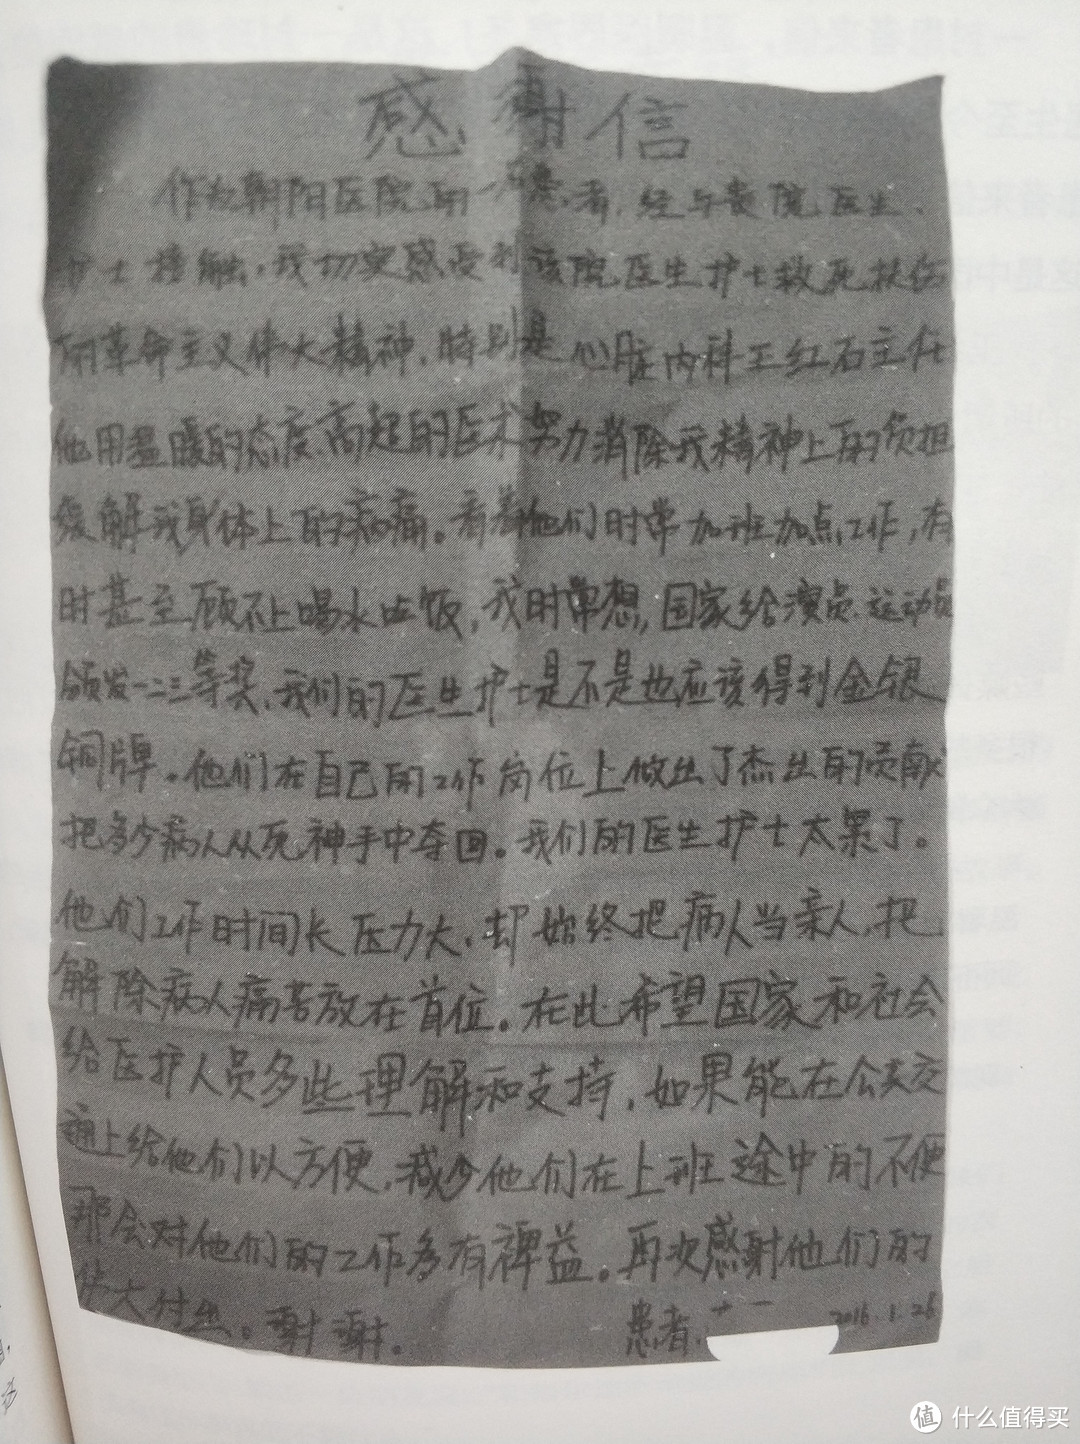 感谢信
作为朝阳医院的一名患者,经与贵院医生、
护士接触,我切实感受到该院医生护士救死扶伤
的革命主义伟大精神,特别是心脏内科王红石主任
他用温暖的态度、高超的医术努力消除我精神上的负担
缓解我身体上的病痛。看着他们时常加班加点工作,有
时甚至顾不上喝水吃饭,我时常想,国家给演员、运动员
颁发一二三等奖,我们的医生护士是不是也应该得到金银
铜牌。他们在自己的工作岗位上做出了杰出的贡献
把多少病人从死神手中夺回。我们的医生护士太累了。
他们工作时间长压力大,却始终把病人当亲人,把
解除病人痛苦放在首位。在此希望国家和社会
给医护人员多些理解和支持,如果能在公共交
通上给他们以方便,减少他们在上班途中的不便
那会对他们的工作多有裨益。再次感谢他们的
伟大付出。谢谢。
患者:
2016.1.26
值 什么值得买